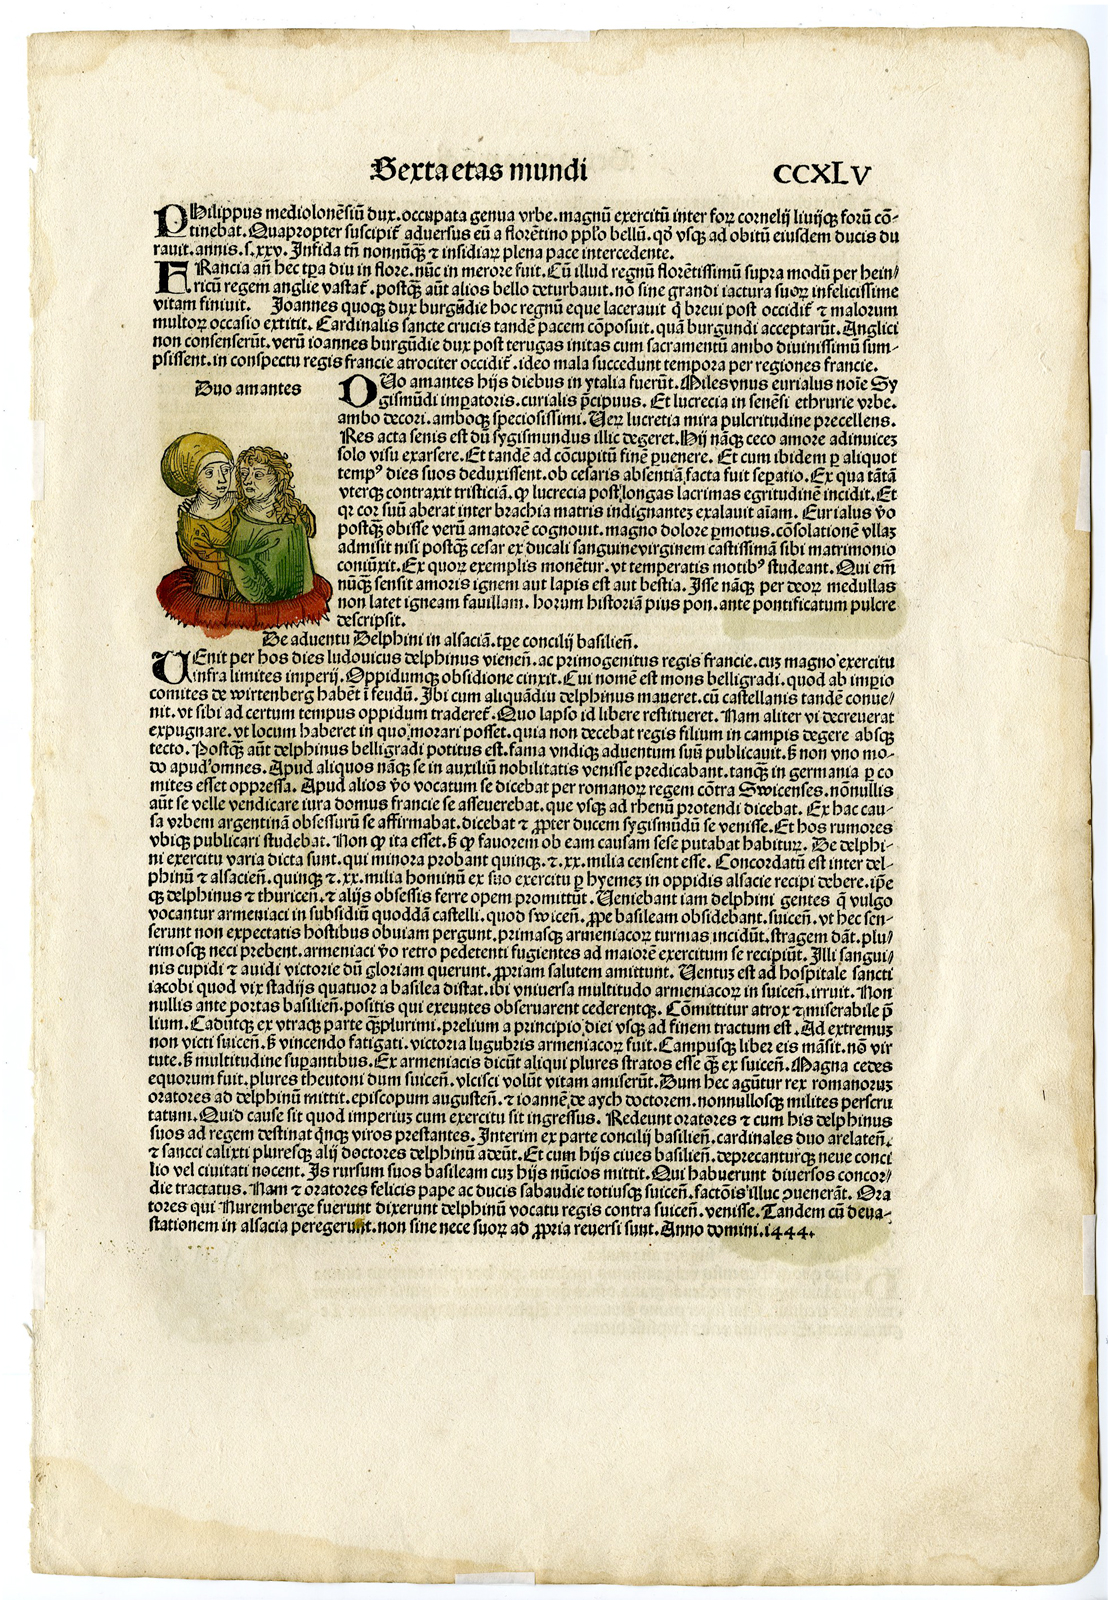 Sexta etas mundi
CCXLV
Philippus mediolonēsiū dux.occupata genua vrbe.magnū exercitū inter forꝝ cornelij liuijqꝫ forū cō-
tinebat.Quapropter suscipit̄ aduersus eū a florētino pplo bellū.qd̄ vsqꝫ ad obitū eiusdem ducis du
rauit.annis.s.xxv.Infida tn̄ nonnūqꝫ ⁊ insidiarꝝ plena pace intercedente.
FRancia an̄ hec tꝑa diu in flore.nūc in merore fuit.Cū illud regnū florētissimū supra modū per hein/
ricū regem anglie vastat̄.postqꝫ aūt alios bello deturbauit.nō sine grandi iactura suorꝝ infelicissime
vitam finiuit. Joannes quoqꝫ dux burgūdie hoc regnū eque lacerauit q̄ breui post occidit̄ ⁊ malorum
multorꝝ occasio extitit.Cardinalis sancte crucis tandē pacem cōposuit.quā burgundi acceptarūt.Anglici
non consenserūt.verū ioannes burgūdie dux post terugas initas cum sacramentū ambo diuinissimū sum-
psissent.in conspectu regis francie atrociter occidit̄.ideo mala succedunt tempora per regiones francie.
Duo amantes
DUo amantes hijs diebus in ytalia fuerūt.Miles vnus eurialus noīe Sy
gismūdi imꝑatoris.curialis p̄cipuus.Et lucrecia in senēsi ethrurie vrbe.
ambo decori.amboqꝫ speciosissimi.Uerꝝ lucretia mira pulcritudine precellens.
Res acta senis est dū sygismundus illic degeret.Hij nāqꝫ ceco amore adinuicez
solo visu exarsere.Et tandē ad cōcupitū finē ꝑuenere.Et cum ibidem ꝑ aliquot
tempꝰ dies suos deduxissent.ob cesaris absentiā facta fuit seꝑatio.Ex qua tātā
vterqꝫ contraxit tristiciā.ꝙ lucrecia post longas lacrimas egritudinē incidit.Et
qꝛ cor suū aberat inter brachia matris indignantez exalauit aīam.Eurialus v̄o
postqꝫ obisse verū amatorē cognouit.magno dolore ꝑmotus.cōsolationē vllaz
admisit nisi postqꝫ cesar ex ducali sanguine virginem castissimā sibi matrimonio
coniūxit.Ex quorꝝ exemplis monētur.vt temperatis motibꝰ studeant.Qui em̄
nūqꝫ sensit amoris ignem aut lapis est aut bestia.Isse nāqꝫ per deorꝝ medullas
non latet igneam fauillam.horum historiā pius pon.ante pontificatum pulcre
descripsit.
De aduentu Delphini in alsaciā.tꝑe concilij basilien̄.
UEnit per hos dies ludouicus delphinus vienen̄.ac primogenitus regis francie.cuz magno exercitu
infra limites imperij.Oppidumqꝫ obsidione cinxit.Cui nomē est mons belligradi.quod ab imꝑio
comites de wirtenberg habēt ī feudū.Ibi cum aliquādiu delphinus maneret.cū castellanis tandē conue/
nit.vt sibi ad certum tempus oppidum traderet̄.Quo lapso id libere restitueret.Nam aliter vi decreuerat
expugnare.vt locum haberet in quo morari posset.quia non decebat regis filium in campis degere absqꝫ
tecto.Postqꝫ aūt delphinus belligradi potitus est.fama vndiqꝫ aduentum suū publicauit.sꝫ non vno mo-
do apud omnes.Apud aliquos nāqꝫ se in auxiliū nobilitatis venisse predicabant.tanqꝫ in germania ꝑ co
mites esset oppressa.Apud alios v̄o vocatum se dicebat per romanorꝝ regem cōtra Swicenses.nōnullis
aūt se velle vendicare iura domus francie se asseuerebat.que vsqꝫ ad rhenū protendi dicebat.Ex hac cau-
sa vrbem argentinā obsessurū se affirmabat.dicebat ⁊ ꝓpter ducem sygismūdū se venisse.Et hos rumores
vbiqꝫ publicari studebat.Non ꝙ ita esset.sꝫ ꝙ fauorem ob eam causam sese putabat habiturꝝ.De delphi-
ni exercitu varia dicta sunt.qui minora probant quinqꝫ.⁊.xx.milia censent esse.Concordatū est inter del-
phinū ⁊ alsacien̄.quinqꝫ ⁊.xx.milia hominū ex suo exercitu ꝑ hyemez in oppidis alsacie recipi debere.ip̄e
qꝫ delphinus ⁊ thuricen̄.⁊ alijs obsessis ferre opem promittūt.Ueniebant iam delphini gentes q̄ vulgo
vocantur armeniaci in subsidiū quoddā castelli.quod swicen̄.ꝓpe basileam obsidebant.suicen̄.vt hec sen-
serunt non expectatis hostibus obuiam pergunt.primasqꝫ armeniacorꝝ turmas incidūt.stragem dāt.plu/
rimosqꝫ neci prebent.armeniaci v̄o retro pedetenti fugientes ad maiorē exercitum se recipiūt.Illi sangui/
nis cupidi ⁊ auidi victorie dū gloriam querunt.ꝓpriam salutem amittunt.Uentuz est ad hospitale sancti
iacobi quod vix stadijs quatuor a basilea distat.ibi vniuersa multitudo armeniacorꝝ in suicen̄.irruit.Non
nullis ante portas basilien̄.positis qui exeuntes obseruarent cederentqꝫ.Cōmittitur atrox ⁊ miserabile p̄
lium.Caduntqꝫ ex vtraqꝫ parte qꝫplurimi.prelium a principio diei vsqꝫ ad finem tractum est.Ad extremuz
non victi suicen̄.sꝫ vincendo fatigati.victoria lugubris armeniacorꝝ fuit.Campusqꝫ liber eis māsit.nō vir
tute.sꝫ multitudine suꝑantibus.Ex armeniacis dicūt aliqui plures stratos esse qꝫ ex suicen̄.Magna cedes
equorum fuit.plures theutoni dum suicen̄.vlcisci volūt vitam amiserūt.Dum hec agūtur rex romanoruz
oratores ad delphinū mittit.episcopum augusten̄.⁊ ioannē de aych doctorem.nonnullosqꝫ milites perscru
tatum.Quid cause sit quod imperiuz cum exercitu sit ingressus.Redeunt oratores ⁊ cum his delphinus
suos ad regem destinat qnqꝫ viros prestantes.Interim ex parte concilij basilien̄.cardinales duo arelaten̄.
⁊ sancci calixti pluresqꝫ alij doctores delphinū adeūt.Et cum hijs ciues basilien̄.deprecanturqꝫ neue conci
lio vel ciuitati nocent.Is rursum suos basileam cuz hijs nūcios mittit.Qui habuerunt diuersos concor/
die tractatus.Nam ⁊ oratores felicis pape ac ducis sabaudie totiusqꝫ suicen̄.factōis illuc ꝯuenerāt.Ora
tores qui Nuremberge fuerunt dixerunt delphinū vocatu regis contra suicen̄.venisse.Tandem cū deua-
stationem in alsacia peregerunt.non sine nece suorꝝ ad ꝓpria reuersi sunt.Anno domini.1444.